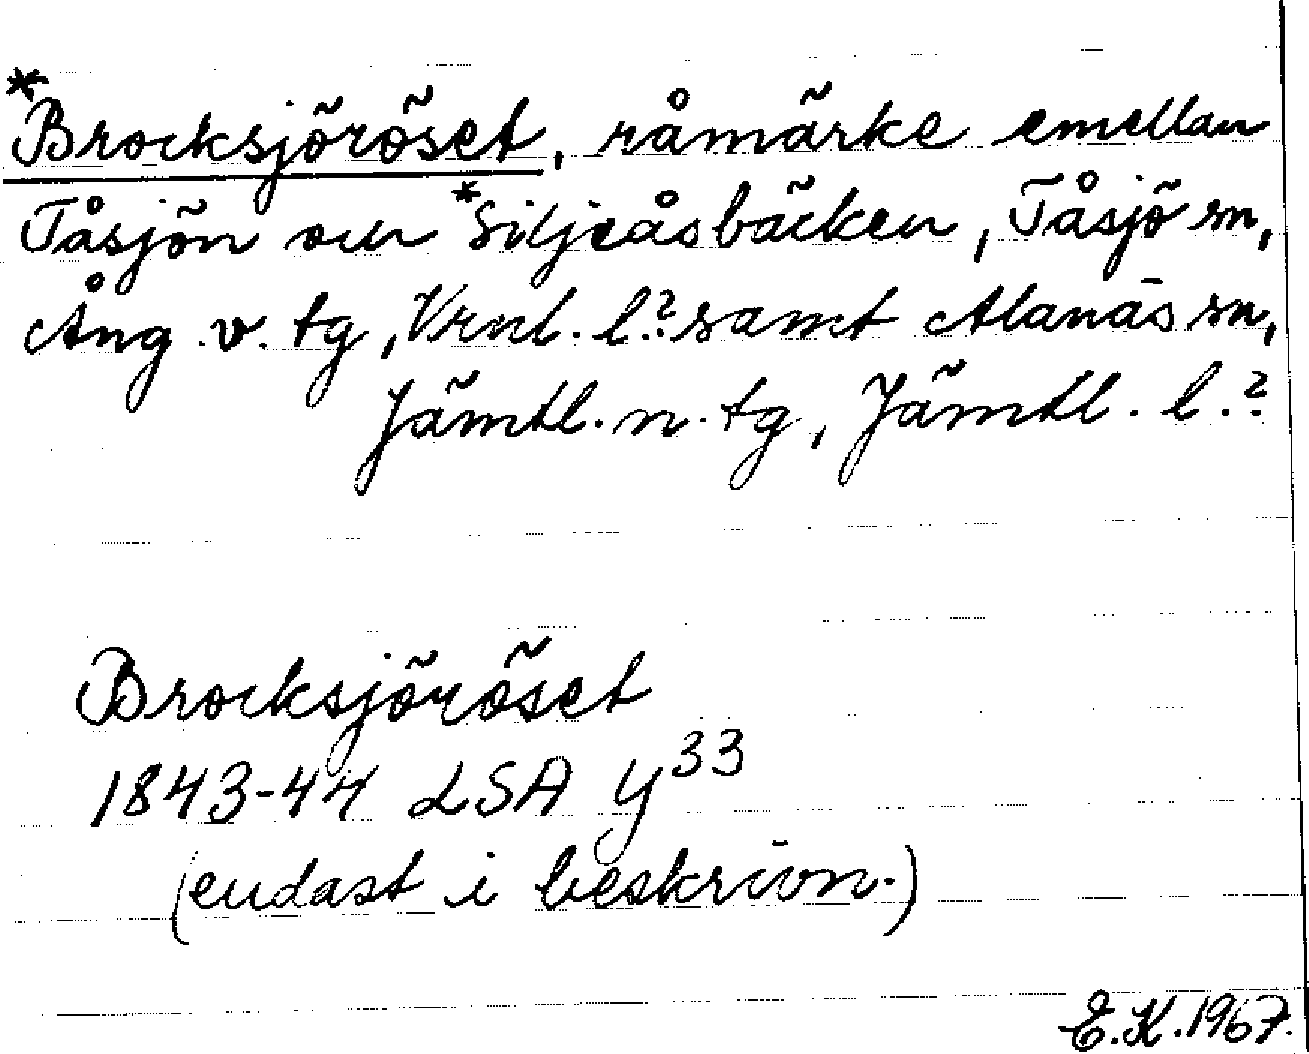 *Brocksjöröset, råmärke emellan
Tåsjön och *Siljeåsbäcken, Tåsjö sn,
Ång. v. tg, Vrnl. l.? samt Alanäs sn,
Jämtl. n. tg, Jämtl. l.?
Brocksjöröset
1843-44 LSA Y³³
(endast i beskrivn.)
E.K. 1967.